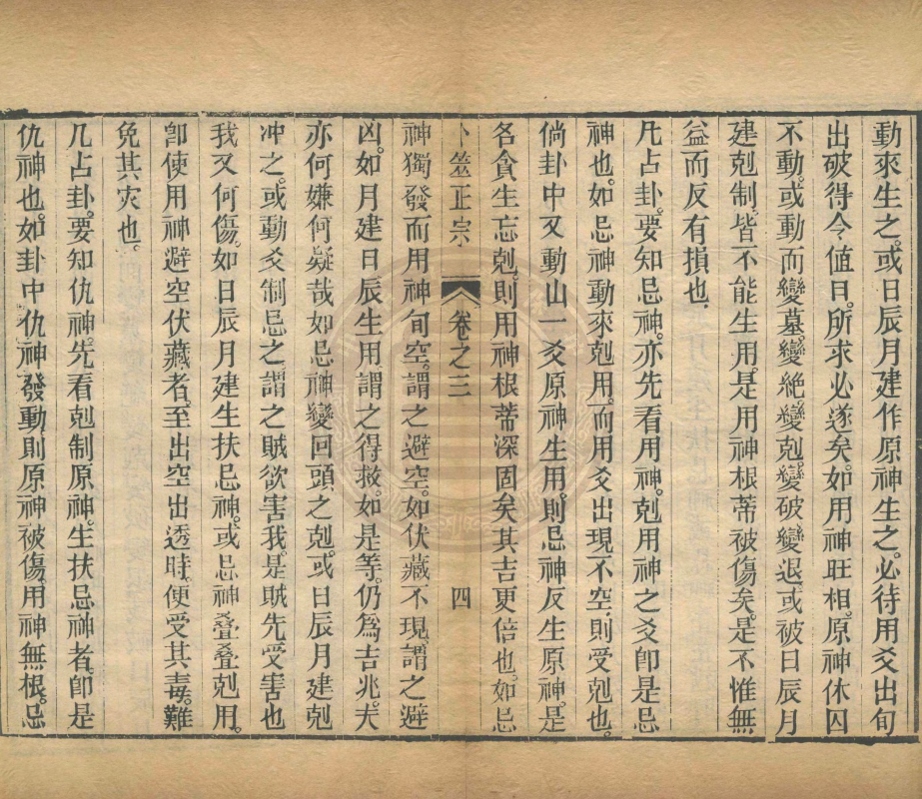 動來生之或日辰月建作原神生之必待用爻出旬
出破得令值日所求必遂矣如用神旺相原神休囚
不動或動而變墓變絕變剋變破變退或被日辰月
建剋制皆不能生用是用神根蒂被傷矣是不惟無
益而反有損也
凡占卦要知忌神亦先看用神剋用神之爻卽是忌
神也如忌神動來剋用而用爻出現不空則受剋也
倘卦中又動出一爻原神生用則忌神反生原神是
各貪生忘剋則用神根蒂深固矣其吉更倍也如忌
卜筮正宗 卷之三 四
神獨發而用神旬空謂之避空如伏藏不現謂之避
凶如月建日辰生用謂之得救如是等仍爲吉兆夫
亦何嫌何疑哉如忌神變回頭之剋或日辰月建剋
冲之或動爻制忌之謂之賊欲害我是賊先受害也
我又何傷如日辰月建生扶忌神或忌神叠叠剋用
卽使用神避空伏藏者至出空出透時便受其毒難
免其灾也
凡占卦要知仇神先看剋制原神生扶忌神者卽是
仇神也如卦中仇神發動則原神被傷用神無根忌